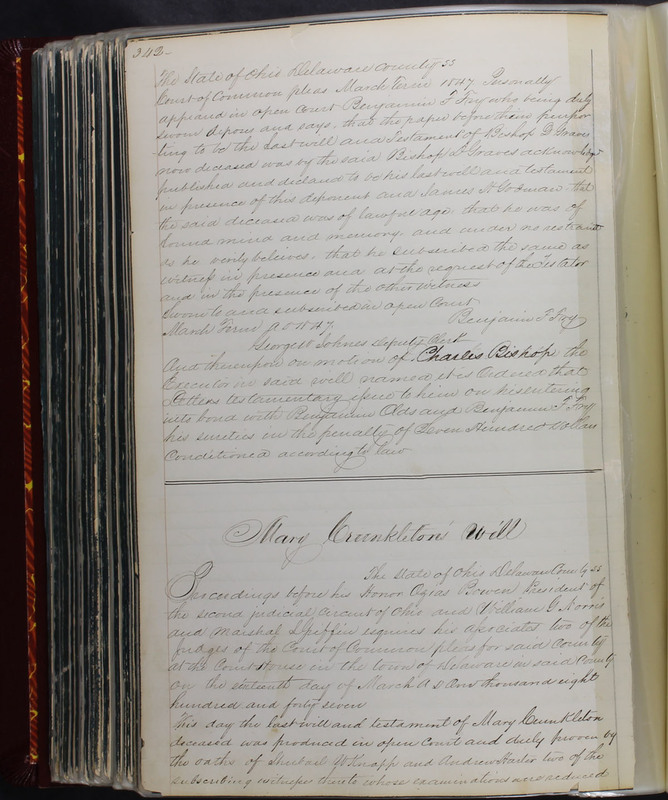 242
The State of Ohio Delaware County ss
Court of Common pleas March Term 1847 Personally
appeard in open Court Benjamin F Fry who being duly
sworn deposes and says, that the paper before them purpor
ting to be the last will and Testament of Bishop D Graves
now deceased was by the said Bishop D Graves acknowledged
published and declared to be his last will and testament
in presence of this deponent and James N that
the said deceased was of lawful age, that he was of
sound mind and memory, and under no restraint
as he verily believes, that he subscribed the same as
witness in presence and at the request of the Testator
and in the presence of the other witness
Sworn to and subscribed in open Court
March Term A D 1847. Benjamin F Fry
George W Johnes deputy Clerk
And thereupon on motion of Charles Bishop the
Executor in said will named it is Ordered that
Letters testamentary issue to him on his entering
into bond with Benjamin Olds and Benjamin F Fry
his sureties in the penalty of Hundred Dollars
Conditioned according to law
Mary Crunkleton's Will
The State of Ohio Delaware County ss
Proceedings before his Honor Ozias Bowen President of
the second judicial Circuit of Ohio and William G Norris
and Marshal L Griffin esquires his associates two of the
judges of the Court of Common pleas for said County
at the Court House in the town of Delaware in said County
on the sixteenth day of March A D One thousand eight
hundred and forty seven
This day the last will and testament of Mary Crunkleton
deceased was produced in open Court and duly proven by
the oaths of W Knapp and Andrew Harter two of the
subscribing witnesses thereto whose examinations were reduced